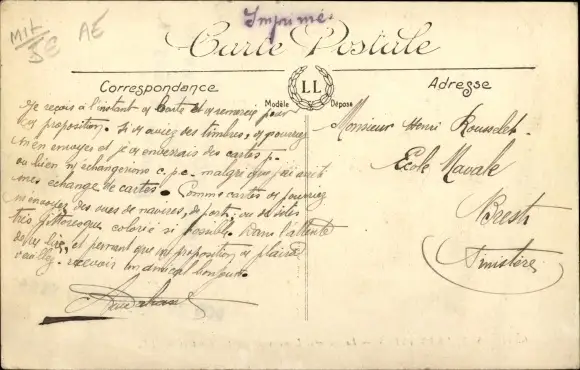 Imprimé
Carte Postale
Correspondance
LL
Modèle Déposé
Adresse
Je reçois à l'instant Carte et remercie pour
proposition. Si aviez des timbres, pouvez
m'en envoyer et j' enverrais des cartes p.
ou bien échangerions c.p.c. malgré que j'ai
mes échange de cartes. Comme cartes pourriez
m'envoyer des vues de navires, de port, ou de
très pittoresque colorié si possible. Dans l'attente
de lire, et pensant que proposition plaira
veuillez recevoir amical bonjour.
Monsieur Henri Rousselet
Ecole Navale
Brest
Finistère